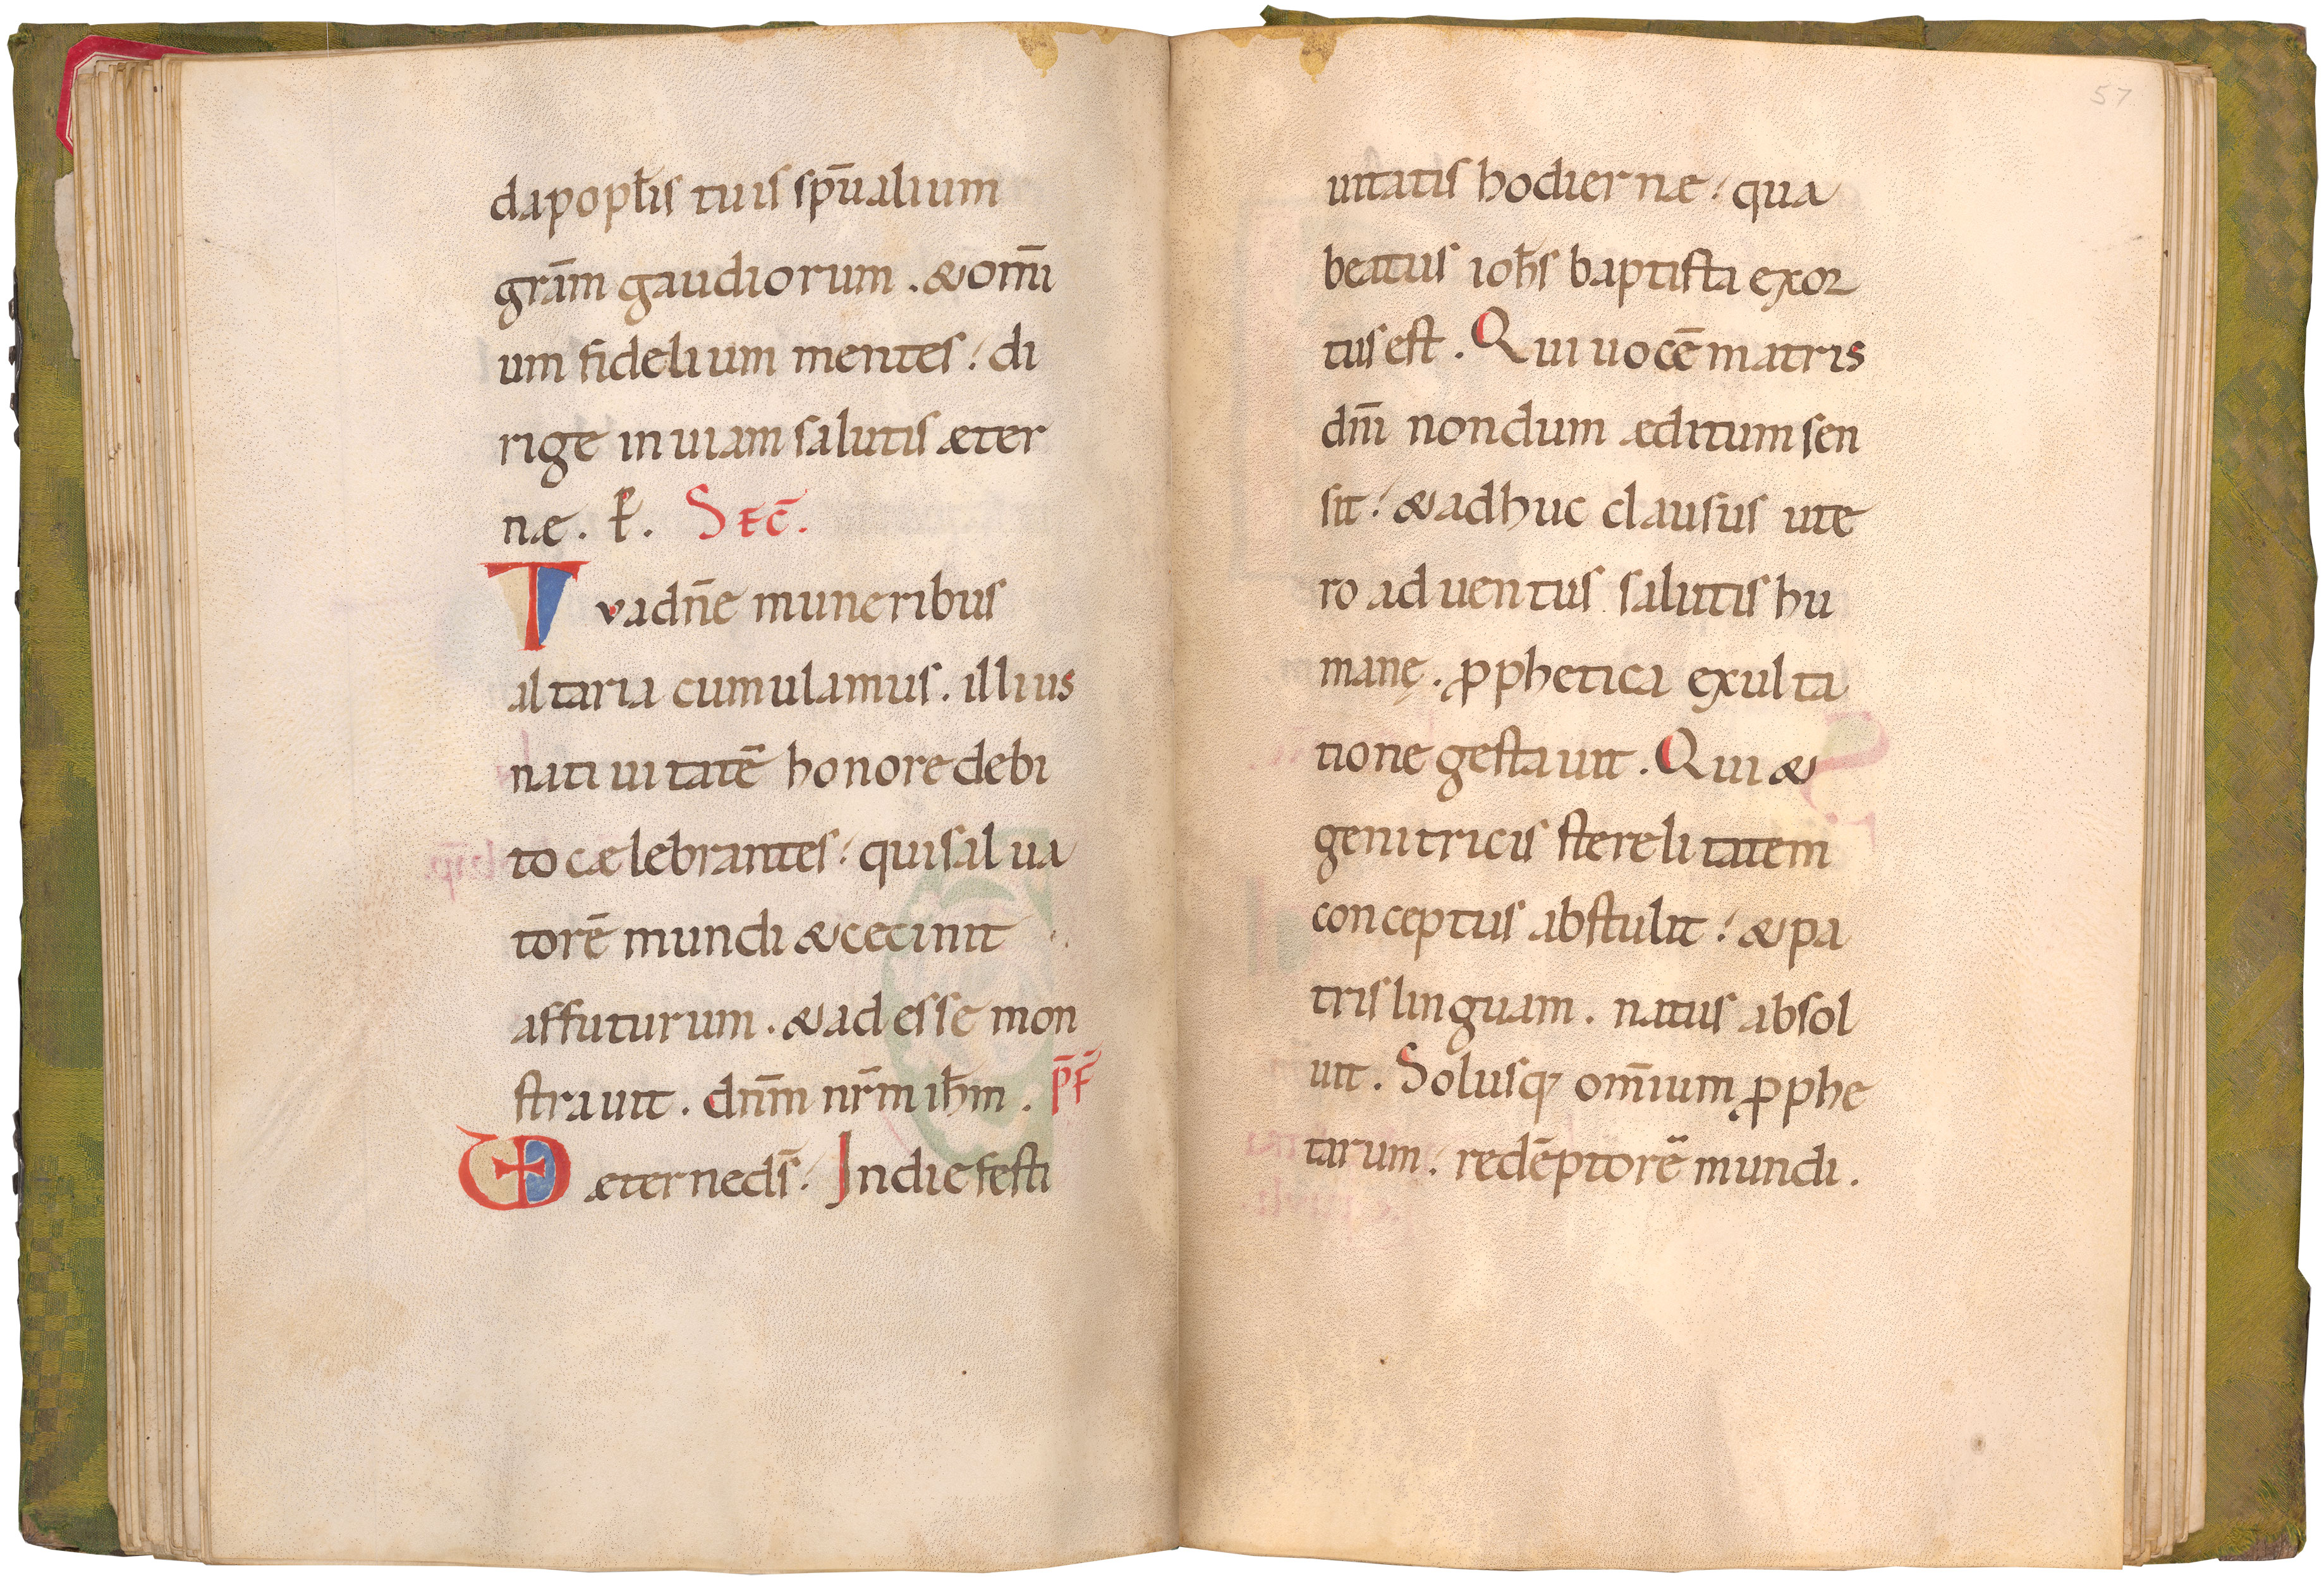 da popl̄is tuis sp̄ualium
grām gaudiorum . & om̄i
um fidelium mentes / di
rige in uiam salutis æter
næ . P̄ . Sec̄ .
Tua dn̄e muneribus
altaria cumulamus . illius
natiuitatē honore debi
to cælebrantes / qui salua
torē mundi & cecinit
affuturum . & adesse mon
strauit . dn̄m nr̄m ih̄m . p̄f̄
VD æterne ds̄ / In die festi
57
uitatis hodiernæ / qua
beatus ioh̄s baptista exor
tus est . Qui uocē matris
dn̄i nondum æditum sen
sit / & adhuc clausus ute
ro aduentus salutis hu
manę . ꝓphetica exulta
tione gestauit . Qui &
genitricis sterelitatem
conceptus abstulit / & pa
tris linguam . natus absol
uit . Solusq; om̄ium ꝓphe
tarum . redēptorē mundi .